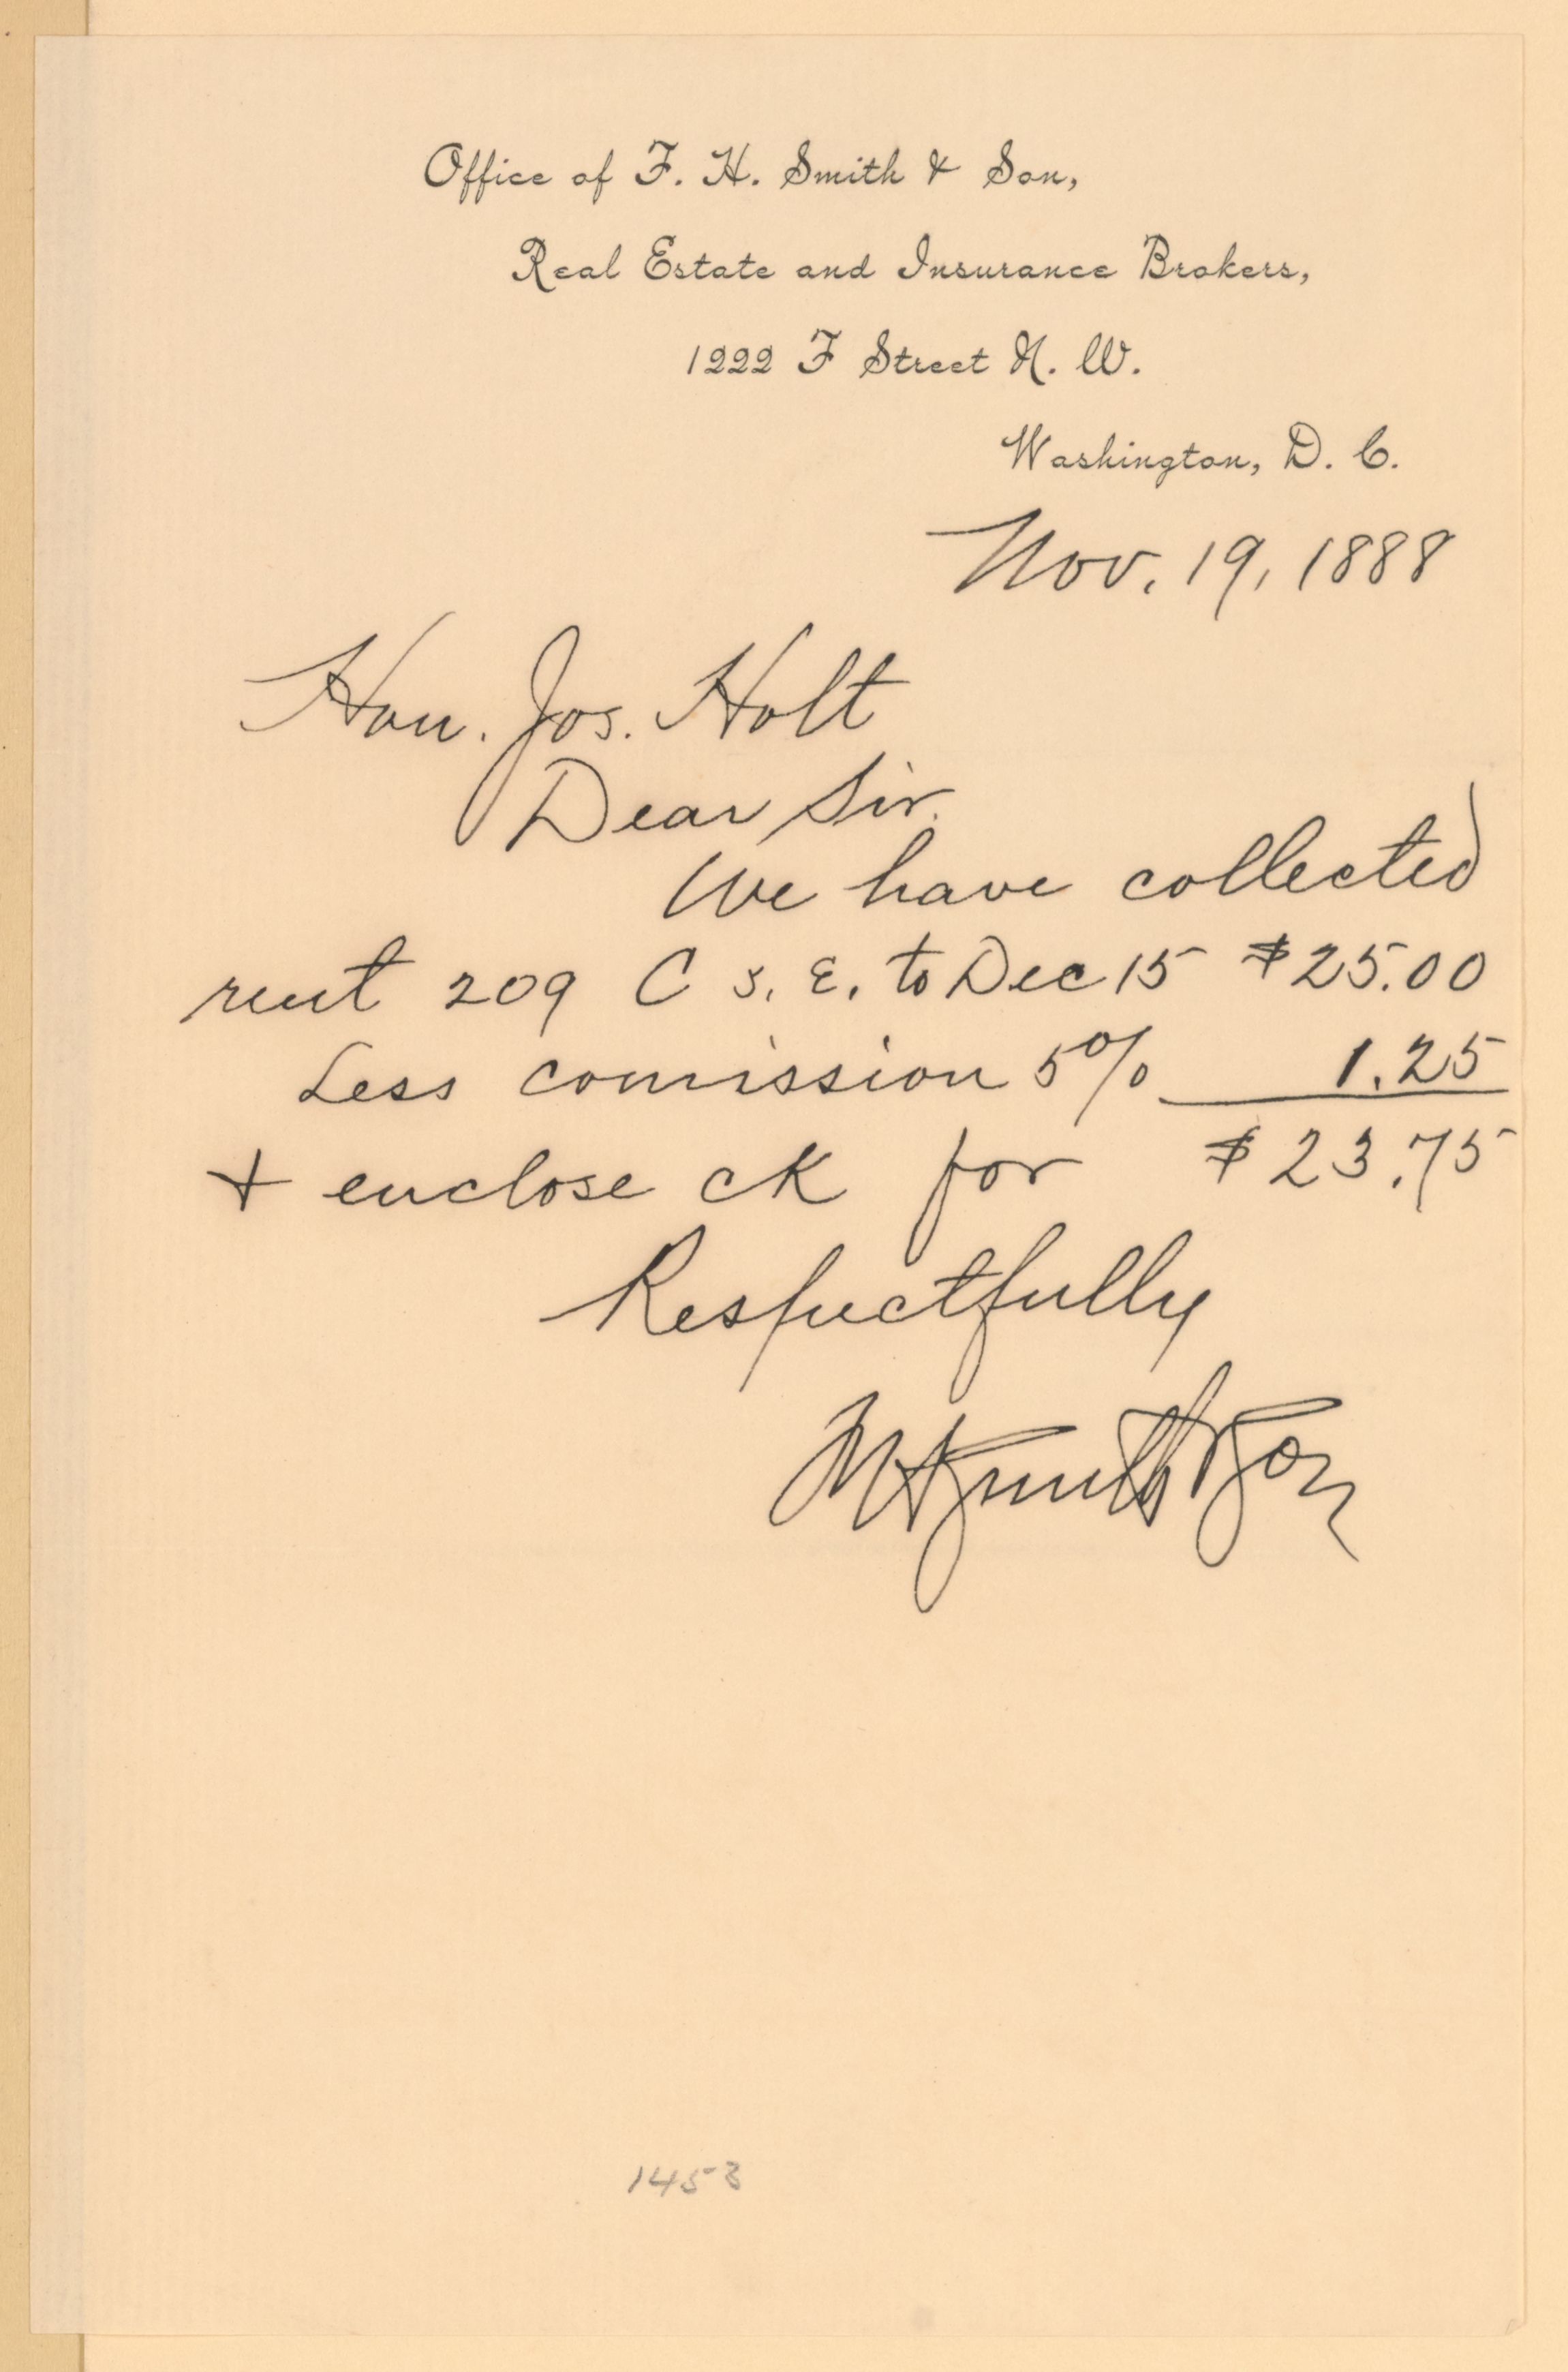 Office of F. H. Smith & Son,
Real Estate and Insurance Brokers,
1222 F Street N. W.
Washington, D. C.
Nov. 19, 1888
Hon. Jos. Holt
Dear Sir.
We have collected
rent 209 C S. E. to Dec 15 $25.00
Less comission 5% 1.25
& enclose ck for $23.75
Respectfully
FH Smith & Son
1453